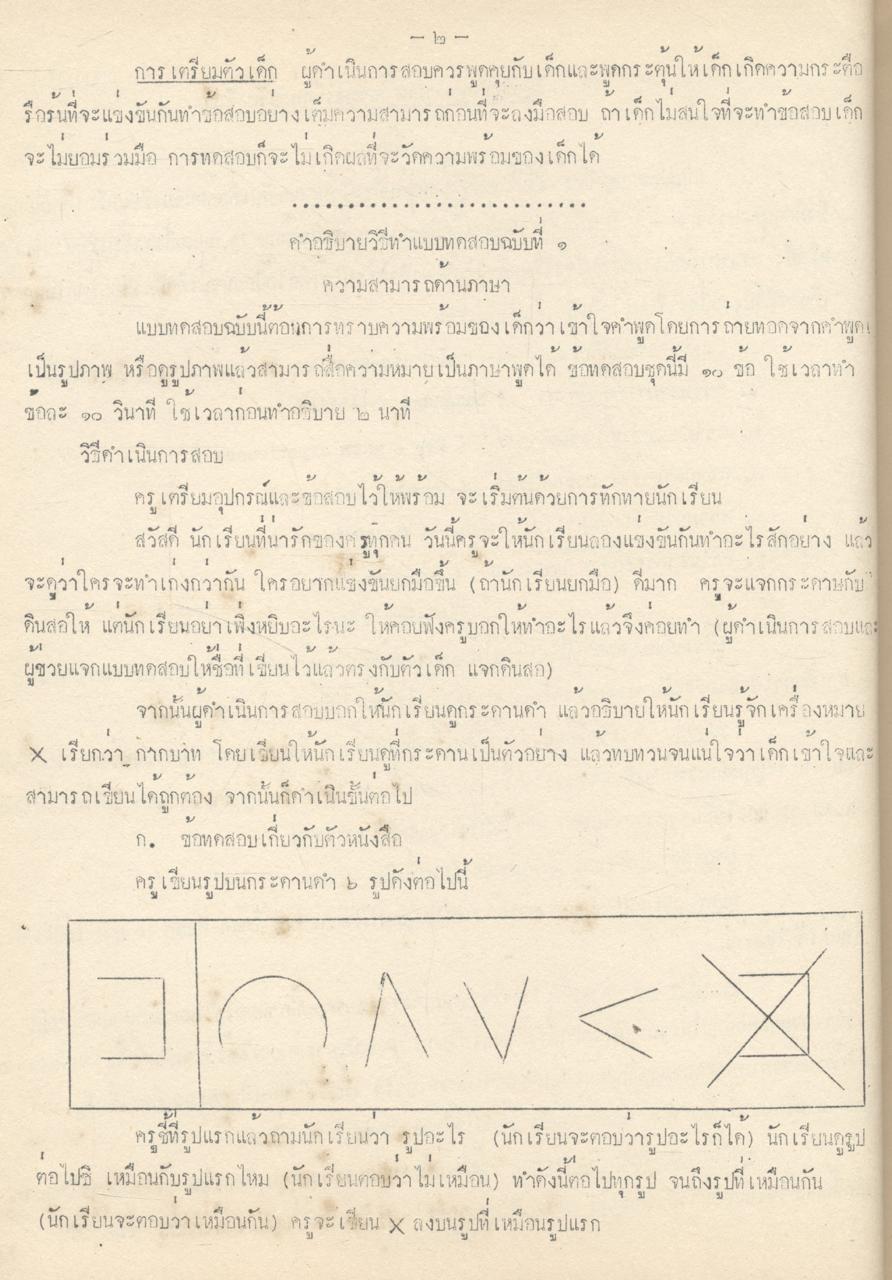 - ๒ -
การเตรียมตัวเด็ก ผู้ดำเนินการสอบควรพูดคุยกับเด็กและพูดกระตุ้นให้เด็กเกิดความกระตือ
รือร้นที่จะแข่งขันกันทำข้อสอบอย่างเต็มความสามารถก่อนที่จะลงมือสอบ ถ้าเด็กไม่สนใจที่จะทำข้อสอบเด็ก
จะไม่ยอมร่วมมือ การทดสอบก็จะไม่เกิดผลที่จะวัดความพร้อมของเด็กได้
..............................
คำอธิบายวิธีทำแบบทดสอบฉบับที่ ๑
ความสามารถด้านภาษา
แบบทดสอบฉบับนี้ต้องการทราบความพร้อมของเด็กว่าเข้าใจคำพูดโดยการถ่ายทอดจากคำพูด
เป็นรูปภาพ หรือดูรูปภาพแล้วสามารถสื่อความหมายเป็นภาษาพูดได้ ข้อทดสอบชุดนี้มี ๑๐ ข้อ ใช้เวลาทำ
ข้อละ ๑๐ วินาที ใช้เวลาก่อนทำอธิบาย ๒ นาที
วิธีดำเนินการสอบ
ครูเตรียมอุปกรณ์และข้อสอบไว้ให้พร้อม จะเริ่มต้นด้วยการทักทายนักเรียน
สวัสดี นักเรียนที่น่ารักของครูทุกคน วันนี้ครูจะให้นักเรียนลองแข่งขันกันทำอะไรสักอย่าง แล้ว
จะดูว่าใครจะทำเก่งกว่ากัน ใครอยากแข่งขันยกมือขึ้น (ถ้านักเรียนยกมือ) ดีมาก ครูจะแจกกระดาษกับ
ดินสอให้ แต่นักเรียนอย่าเพิ่งหยิบอะไรนะ ให้คอยฟังครูบอกให้ทำอะไรแล้วจึงค่อยทำ (ผู้ดำเนินการสอบและ
ผู้ช่วยแจกแบบทดสอบให้ชื่อที่เขียนไว้แล้วตรงกับตัวเด็ก แจกดินสอ)
จากนั้นผู้ดำเนินการสอบบอกให้นักเรียนดูกระดานดำ แล้วอธิบายให้นักเรียนรู้จักเครื่องหมาย
X เรียกว่า กากบาท โดยเขียนให้นักเรียนดูที่กระดานเป็นตัวอย่าง แล้วทบทวนจนแน่ใจว่าเด็กเข้าใจและ
สามารถเขียนได้ถูกต้อง จากนั้นก็ดำเนินขั้นต่อไป
ก. ข้อทดสอบเกี่ยวกับตัวหนังสือ
ครูเขียนรูปบนกระดานดำ ๖ รูปดังต่อไปนี้
ครูชี้ที่รูปแรกแล้วถามนักเรียนว่า รูปอะไร (นักเรียนจะตอบว่ารูปอะไรก็ได้) นักเรียนดูรูป
ต่อไปซิ เหมือนกับรูปแรกไหม (นักเรียนตอบว่าไม่เหมือน) ทำดังนี้ต่อไปทุกรูป จนถึงรูปที่เหมือนกัน
(นักเรียนจะตอบว่าเหมือนกัน) ครูจะเขียน X ลงบนรูปที่เหมือนรูปแรก